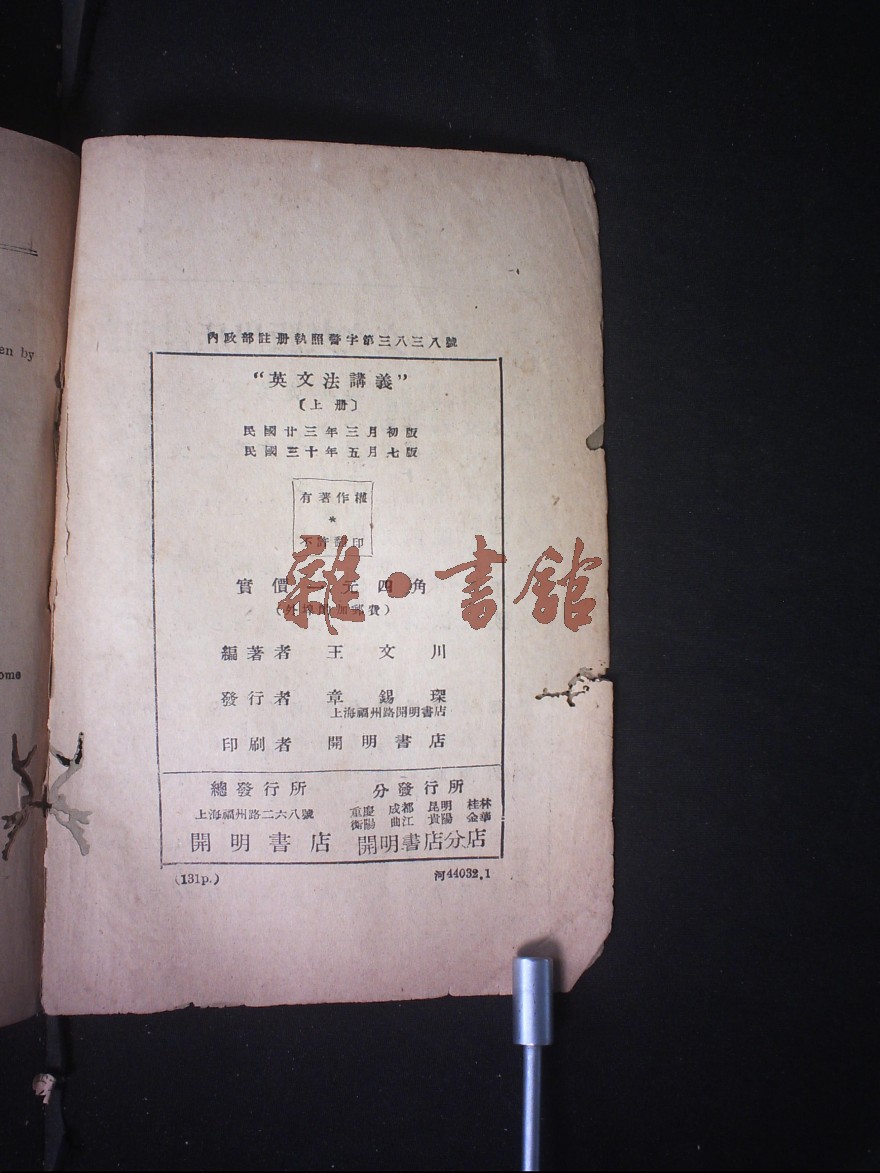 en by
ome
內政部註册執照警字第三八三八號
“英文法講義”
〔上册〕
民國廿三年三月初版
民國三十年五月七版
有著作權
*
不許翻印
實價一元四角
(外埠酌加郵費)
編著者 王文川
發行者 章錫琛
上海福州路開明書店
印刷者 開明書店
總發行所
上海福州路二六八號
開明書店
分發行所
重慶 成都 昆明 桂林
衡陽 曲江 貴陽 金華
開明書店分店
(131p.) 河44032.1
雜·書館